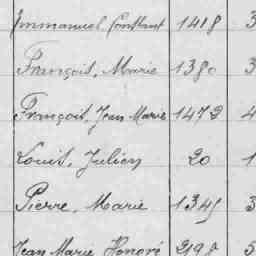 Emmanuel Constant 1418 3
François, Marie 1380 3
François, Jean Marie 1472 4
Louis, Julien 20 1
Pierre, Marie 1345 3
Jean Marie Honoré 2198 5